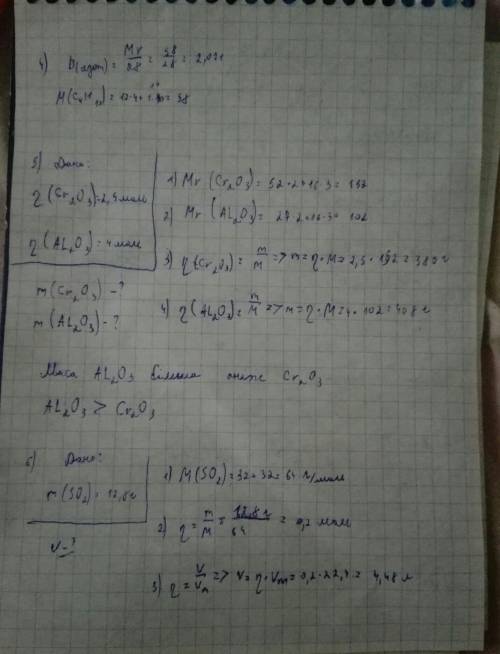 4) D(азот) = Mr/28 = 58/28 = 2,071
M(C₄H₁₀) = 12·4+1·10 = 58
5) Дано:
η(Cr₂O₃) = 2,5 моль
η(AL₂O₃) = 4 моль
m(Cr₂O₃) - ?
m(AL₂O₃) - ?
1) Mr(Cr₂O₃) = 52·2+16·3 = 152
2) Mr(AL₂O₃) = 27·2+16·3 = 102
3) η(Cr₂O₃) = m/M => m = η·M = 2,5·152 = 380 г
4) η(AL₂O₃) = m/M => m = η·M = 4·102 = 408 г
Маса AL₂O₃ більша Cr₂O₃
AL₂O₃ > Cr₂O₃
6) Дано:
m(SO₂) = 12,8 г
V - ?
1) M(SO₂) = 32+32 = 64 г/моль
2) η = m/M = 12,8 г/64 = 0,2 моль
3) η = V/Vm => V = η·Vm = 0,2·22,4 = 4,48 л